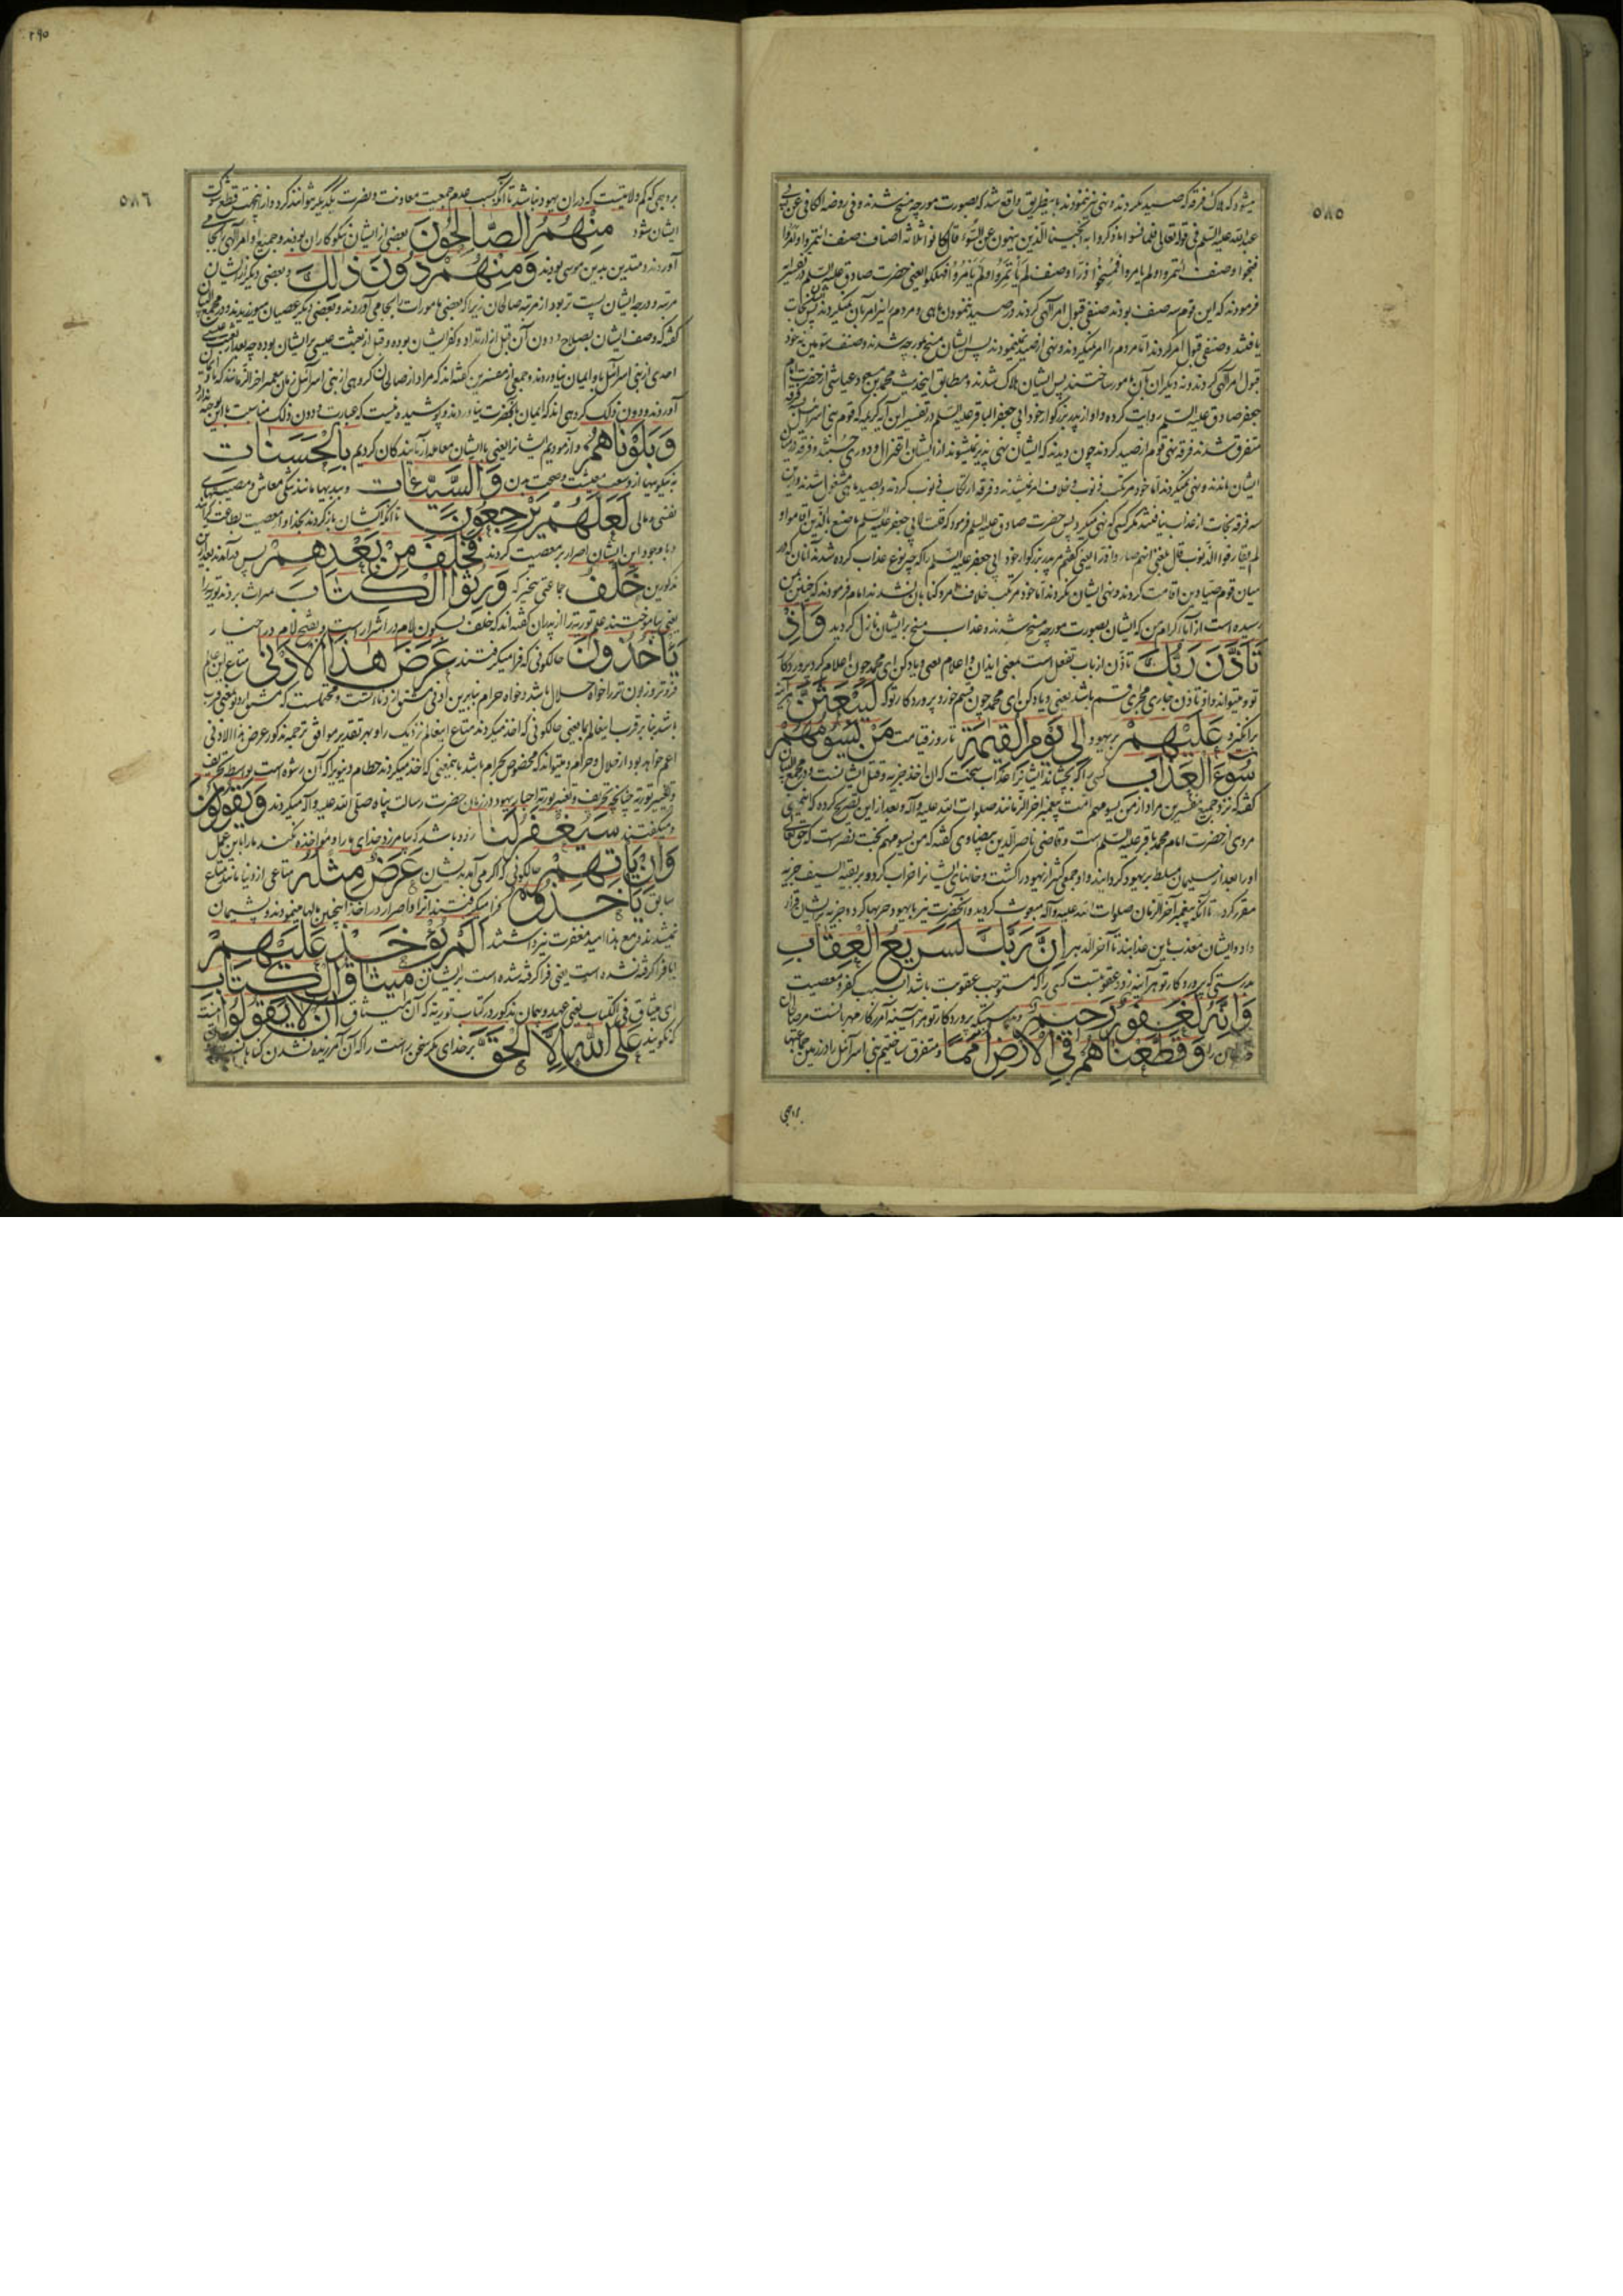 ۵۸۵
میشود که هلاک فرقه که صید نکردند و نهی نیز ننمودند باینطریق واقع شد که بصورت مورچه مسخ شدند و فی روضة الکافی عن ابی
عبدالله علیه السلم فی قوله تعالی فلما نسوا ما ذکروا به انجینا الذین ینهون عن السوء قال کانوا ثلاثة اصناف صنف ائتمروا وامروا
فنجوا وصنف ائتمروا ولم یامروا فمسخوا ذرا وصنف لم یأتمروا ولم یأمروا فهلکوا یعنی حضرت صادق علیه السلم در تفسیر
فرمودند که این قوم سه صنف بودند صنفی قبول امر الهی کردند در صید ننمودن ماهی و مردم را نیز امر بآن میکردند پس نجات
یافتند و صنفی قبول امر کردند اما مردم را امر نمیکردند و نهی از صید نمینمودند پس ایشان مسخ بمورچه شدند و صنف سومین نه خود
قبول امر الهی کردند و نه دیگران بآن مامور ساختند پس ایشان هلاک شدند و مطابق اینحدیث محمد بن مسعود عیاشی از حضرت امام
جعفر صادق علیه السلم روایت کرده و او از پدر بزرگوار خود ابی جعفر الباقر علیه السلم در تفسیر این آیه کریمه که قوم بنی اسرائیل
متفرق شدند فرقه نهی قوم از صید کردند چون دیدند که ایشان نهی پذیر نمیشوند از ایشان اعتزال و دوری جستند و فرقه در میان
ایشان ماندند و نهی نمیکردند اما خود مرتکب ذنوب و خلاف امر نمیشدند و فرقه ارتکاب ذنوب کردند و بصید ماهی مشغول شدند و از این
سه فرقه نجات از عذاب نیافتند مگر کسی که نهی میکرد پس حضرت صادق علیه السلم فرمود که قلت لابی جعفر علیه السلم ما صنع بالذین اقاموا و
لم یقارفوا الذنوب قال بلغنی انهم صاروا ذرا یعنی گفتم مر پدر بزرگوار خود ابی جعفر علیه السلم را که چه نوع عذاب کرده شدند آنان که در
میان قوم صیادین اقامت کردند و نهی ایشان نکردند اما خود مرتکب خلاف امر و گناه آن نشدند امام فرمودند که چنین بمن
رسیده است از آباء کرام من که ایشان بصورت مورچه مسخ شدند و عذاب مسخ بر ایشان نازل گردید وَاِذْ
تَاَذَّنَ رَبُّكَ تأذن از باب تفعل است بمعنی ایذان و اعلام یعنی و یاد کن ای محمد چون اعلام کرد پروردگار
تو و میتواند و او تاذن جاری مجری قسم باشد یعنی و یاد کن ای محمد چون قسم خورد پروردگار تو که لَيَبْعَثَنَّ هر آینه
برانگیزد عَلَيْهِمْ بر یهود اِلٰى يَوْمِ الْقِيٰمَةِ تا روز قیامت مَنْ يَسُومُهُمْ
سُوءَ الْعَذَابِ کسی را که بچشاند ایشانرا عذاب سخت که ان اخذ جزیه و قتل ایشانست و در مجمع البیان
گفته که نزد جمیع مفسرین مراد از من یسومهم امت پیغمبر اخر الزمانند صلوات الله علیه و آله و بعد از این تصریح کرده که اینمعنی
مروی از حضرت امام محمد باقر علیه السلم است و قاضی ناصر الدین بیضاوی گفته که من یسومهم بخت نصر است که حق تعالی
او را بعد از سلیمان مسلط بر یهود گردانید و او جمعی کثیر از یهود را کشت و خانهای ایشانرا خراب کرد و بر بقیه السیف جزیه
مقرر کرد تا آنکه پیغمبر آخر الزمان صلوات الله علیه و آله مبعوث گردید و آنحضرت نیز با یهود حربها کرد و جزیه بر ایشان قرار
داد و ایشان معذب باین عذابند تا آخر الدهر اِنَّ رَبَّكَ لَسَرِيعُ الْعِقَابِ
بدرستی که پروردگار تو هر آینه زود عقوبتست کسی را که مستوجب عقوبت باشد بسبب کفر و معصیت
وَاِنَّهُ لَغَفُورٌ رَحِيمٌ و بدرستیکه پروردگار تو هر آینه آمرزگار مهربانست مر
را وَقَطَّعْنَاهُمْ فِى الْاَرْضِ اُمَمًا و متفرق ساختیم بنی اسرائیل را در زمین جماعتها
بروجهی
۲۹۵
۵۸۶
بروجهی که کم ولایتیست که در ان یهود نباشد تا آنکه بسبب عدم جمعیت معاونت و نصرت یکدیگر نتوانند کرد و از اینجهت قطع شوکت
ایشان شود مِنْهُمُ الصَّالِحُونَ بعضی از ایشان نیکوکاران بودند و جمیع اوامر الهی بجا می
آوردند و متدین بدین موسی بودند وَمِنْهُمْ دُونَ ذٰلِكَ و بعضی دیگر از ایشان
مرتبه و درجه ایشان پست تر بود از مرتبه صالحان زیرا که بعضی مامورات را بجا می آوردند و بعضی دیگر عصیان میورزیدند و در مجمع البیان
گفته که وصف ایشان بصلاح و دون آن قبل از ارتداد و کفر ایشان بوده و قبل از بعثت عیسی بر ایشان بوده چه بعد از بعثت عیسی
احدی از بنی اسرائیل باو ایمان نیاوردند و جمعی از مفسرین گفته‌اند که مراد از صالحان گروهی از بنی اسرائیل زمان پیغمبر اخر الزمانند که باو
آوردند و دون ذلک گروهی اند که ایمان بآنحضرت نیاوردند و پوشیده نیست که عبارت و دون ذلک مناسبت باین توجیه ندارد
وَبَلَوْنَاهُمْ و آزمودیم ایشانرا یعنی با ایشان معامله آزمایندگان کردیم بِالْحَسَنَاتِ
به نیکوییها از وسعت معیشت و صحت بدن وَالسَّيِّئَاتِ و ببدیها مانند تنگی معاش و مصیبتهای
نفسی و مالی لَعَلَّهُمْ يَرْجِعُونَ تا آنکه ایشان باز گردند بخدا و از معصیت بطاعت گرایند
و با وجود این ایشان اصرار بر معصیت کردند فَخَلَفَ مِنْ بَعْدِهِمْ پس در آمدند بعد از آن
مذکورین خَلْفٌ جماعتی بیخیر که وَرِثُوا الْكِتَابَ میراث بردند توریة را
یعنی بیاموختند علم توریة را از پدران گفته‌اند که خلف بسکون لام در اشرار است و بفتح لام در اخیار
يَأْخُذُونَ حالکونی که فرا میگرفتند عَرَضَ هٰذَا الْاَدْنٰى متاع این عالم
فروتر و زبون تر را خواه حلال باشد و خواه حرام بنابرین ادنی مشتق از دنائتست و محتملست که مشتق از دنو بمعنی قرب
باشد بنا بر قرب اینعالم بما یعنی حالکونی که اخذ میکردند متاع اینعالم نزدیک را و بهر تقدیر موافق ترجمه مذکور عرض هذا الادنی
اعم خواهد بود از حلال و حرام و میتواند که مخصوص بحرام باشد باینمعنی که اخذ میکردند حطام دنیویرا که آن رشوه است بواسطه تحریف
و تغییر توریة چنانچه تحریف و تغییر توریة احبار یهود در زمان حضرت رسالت پناه صلی الله علیه و آله میکردند وَيَقُولُونَ
و میگفتند سَيُغْفَرُ لَنَا زود باشد که بیامرزد خدای ما را و مؤاخذه نکند ما را باین عمل
وَاِنْ يَأْتِهِمْ حالکونی که اگر می آمد بدیشان عَرَضٌ مِثْلُهُ متاعی از دنیا مانند متاع
سابق يَأْخُذُوهُ فرا میگرفتند آنرا و اصرار در اخذ اینچنین مالها مینمودند و پشیمان
نمیشدند و مع هذا امید مغفرت نیز داشتند اَلَمْ يُؤْخَذْ عَلَيْهِمْ
ایا فرا گرفته نشده است یعنی فرا گرفته شده است بر ایشان مِيثَاقُ الْكِتَابِ
ای میثاق فی الکتاب یعنی عهد و پیمان مذکور در کتاب توریة که آن میثاق اَنْ لَا يَقُولُوا اینست
که نگویند عَلَى اللّٰهِ اِلَّا الْحَقَّ بر خدای مگر سخن راست را که آن آمرزیده نشدن گناه